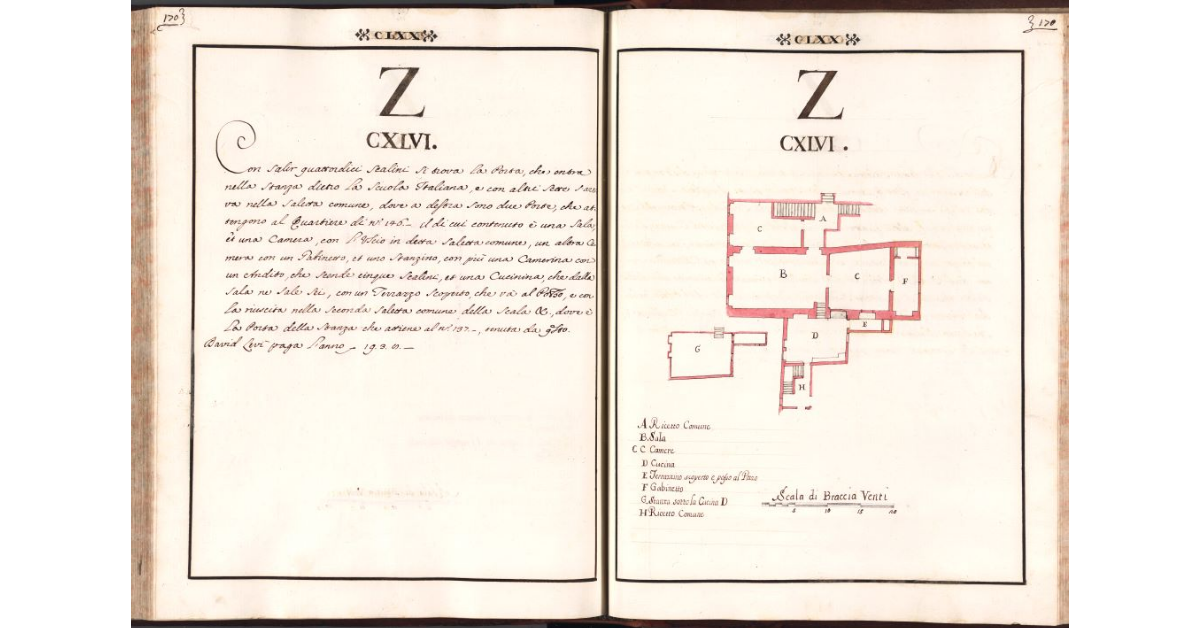 170
CLXX
Z
CXLVI.
Con salir quattordici Scalini si trova la Porta, che entra
nella Stanza dietro la Scuola Italiana, e con altri Sette
va nella Saletta comune, dove a destra sono due Porte, che at
tengono al Quartiere di nº 146. Il di cui contenuto è una Sala,
et una Camera, con l'Uscio in detta Saletta comune, un altra Ca
mera con un Gabinetto, et uno Stanzino, con più una Camerina con
un Andito, che scende cinque Scalini, et una Cucinina, che dalla
Sala ne Sale Sei, con un Terrazzo Scoperto, che và al Pozzo, e con
la riuscita nella Seconda Saletta comune della Scala &, dove è
la Porta della Stanza che attiene al nº 137, tenuta da qto.
David Levi paga l'anno 19.3.
170
CLXX
Z
CXLVI.
A
C
B
C
F
E
D
G
H
A Ricetto Comune
B Sala
C C Camere
D Cucina
E Terrazzino scoperto e posso al Pozzo
F Gabinetto
G Stanza sotto la Cucina D
H Ricetto Comune
Scala di Braccia Venti
5 10 15 20